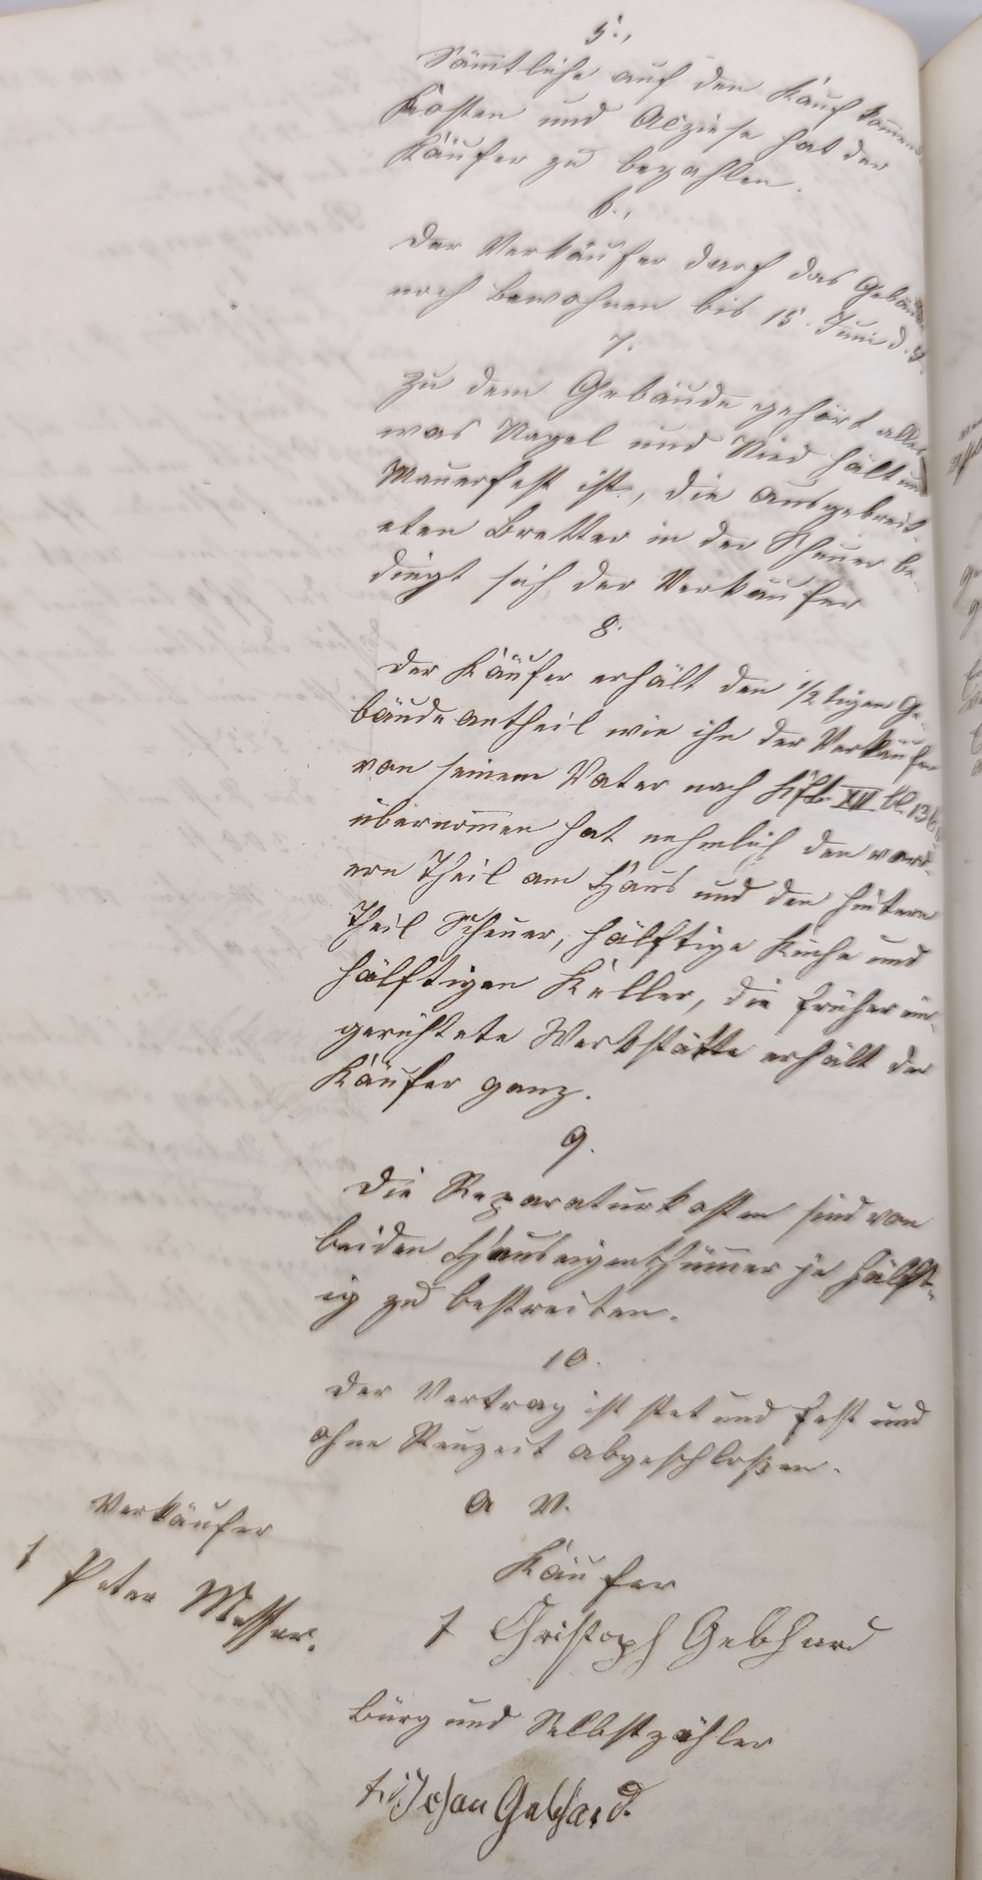 5.,
Sämmtliche auf den Kauf kommend
Kosten und Acziese hat der
Käufer zu bezahlen.
6.,
Der Verkäufer darf das Gebäude
noch bewohnen bis 15. Juni d. J.
7.
Zu dem Gebäude gehört alles
was Nagel und Nied hält und
Mauerfest ist, die ausgebreit-
eten Bretter in der Scheuer be-
dingt sich der Verkäufer
8.
Der Käufer erhält den 1/2 tigen Ge-
bäudeantheil wie ihn der Verkäufer
von seinem Vater nach XII Bl. 136
übernommen hat nehmlich den vord-
ern Theil am Haus und den hintern
Theil Scheuer, hälftige Küche und
hälftigen Keller, die früher ein-
gerichtete Werkstätte erhält der
Käufer ganz.
9.
Die Reparaturkosten sind von
beiden Hauseigenthümmer je hälft-
ig zu bestreiten.
10.
Der Vertrag ist stet und fest und
ohne Reuzeit abgeschloßen.
A V.
Verkäufer
t Peter Messer.
Käufer
t Christoph Gebhard
Bürg und Selbstzahler
t. Johan Gebhard.